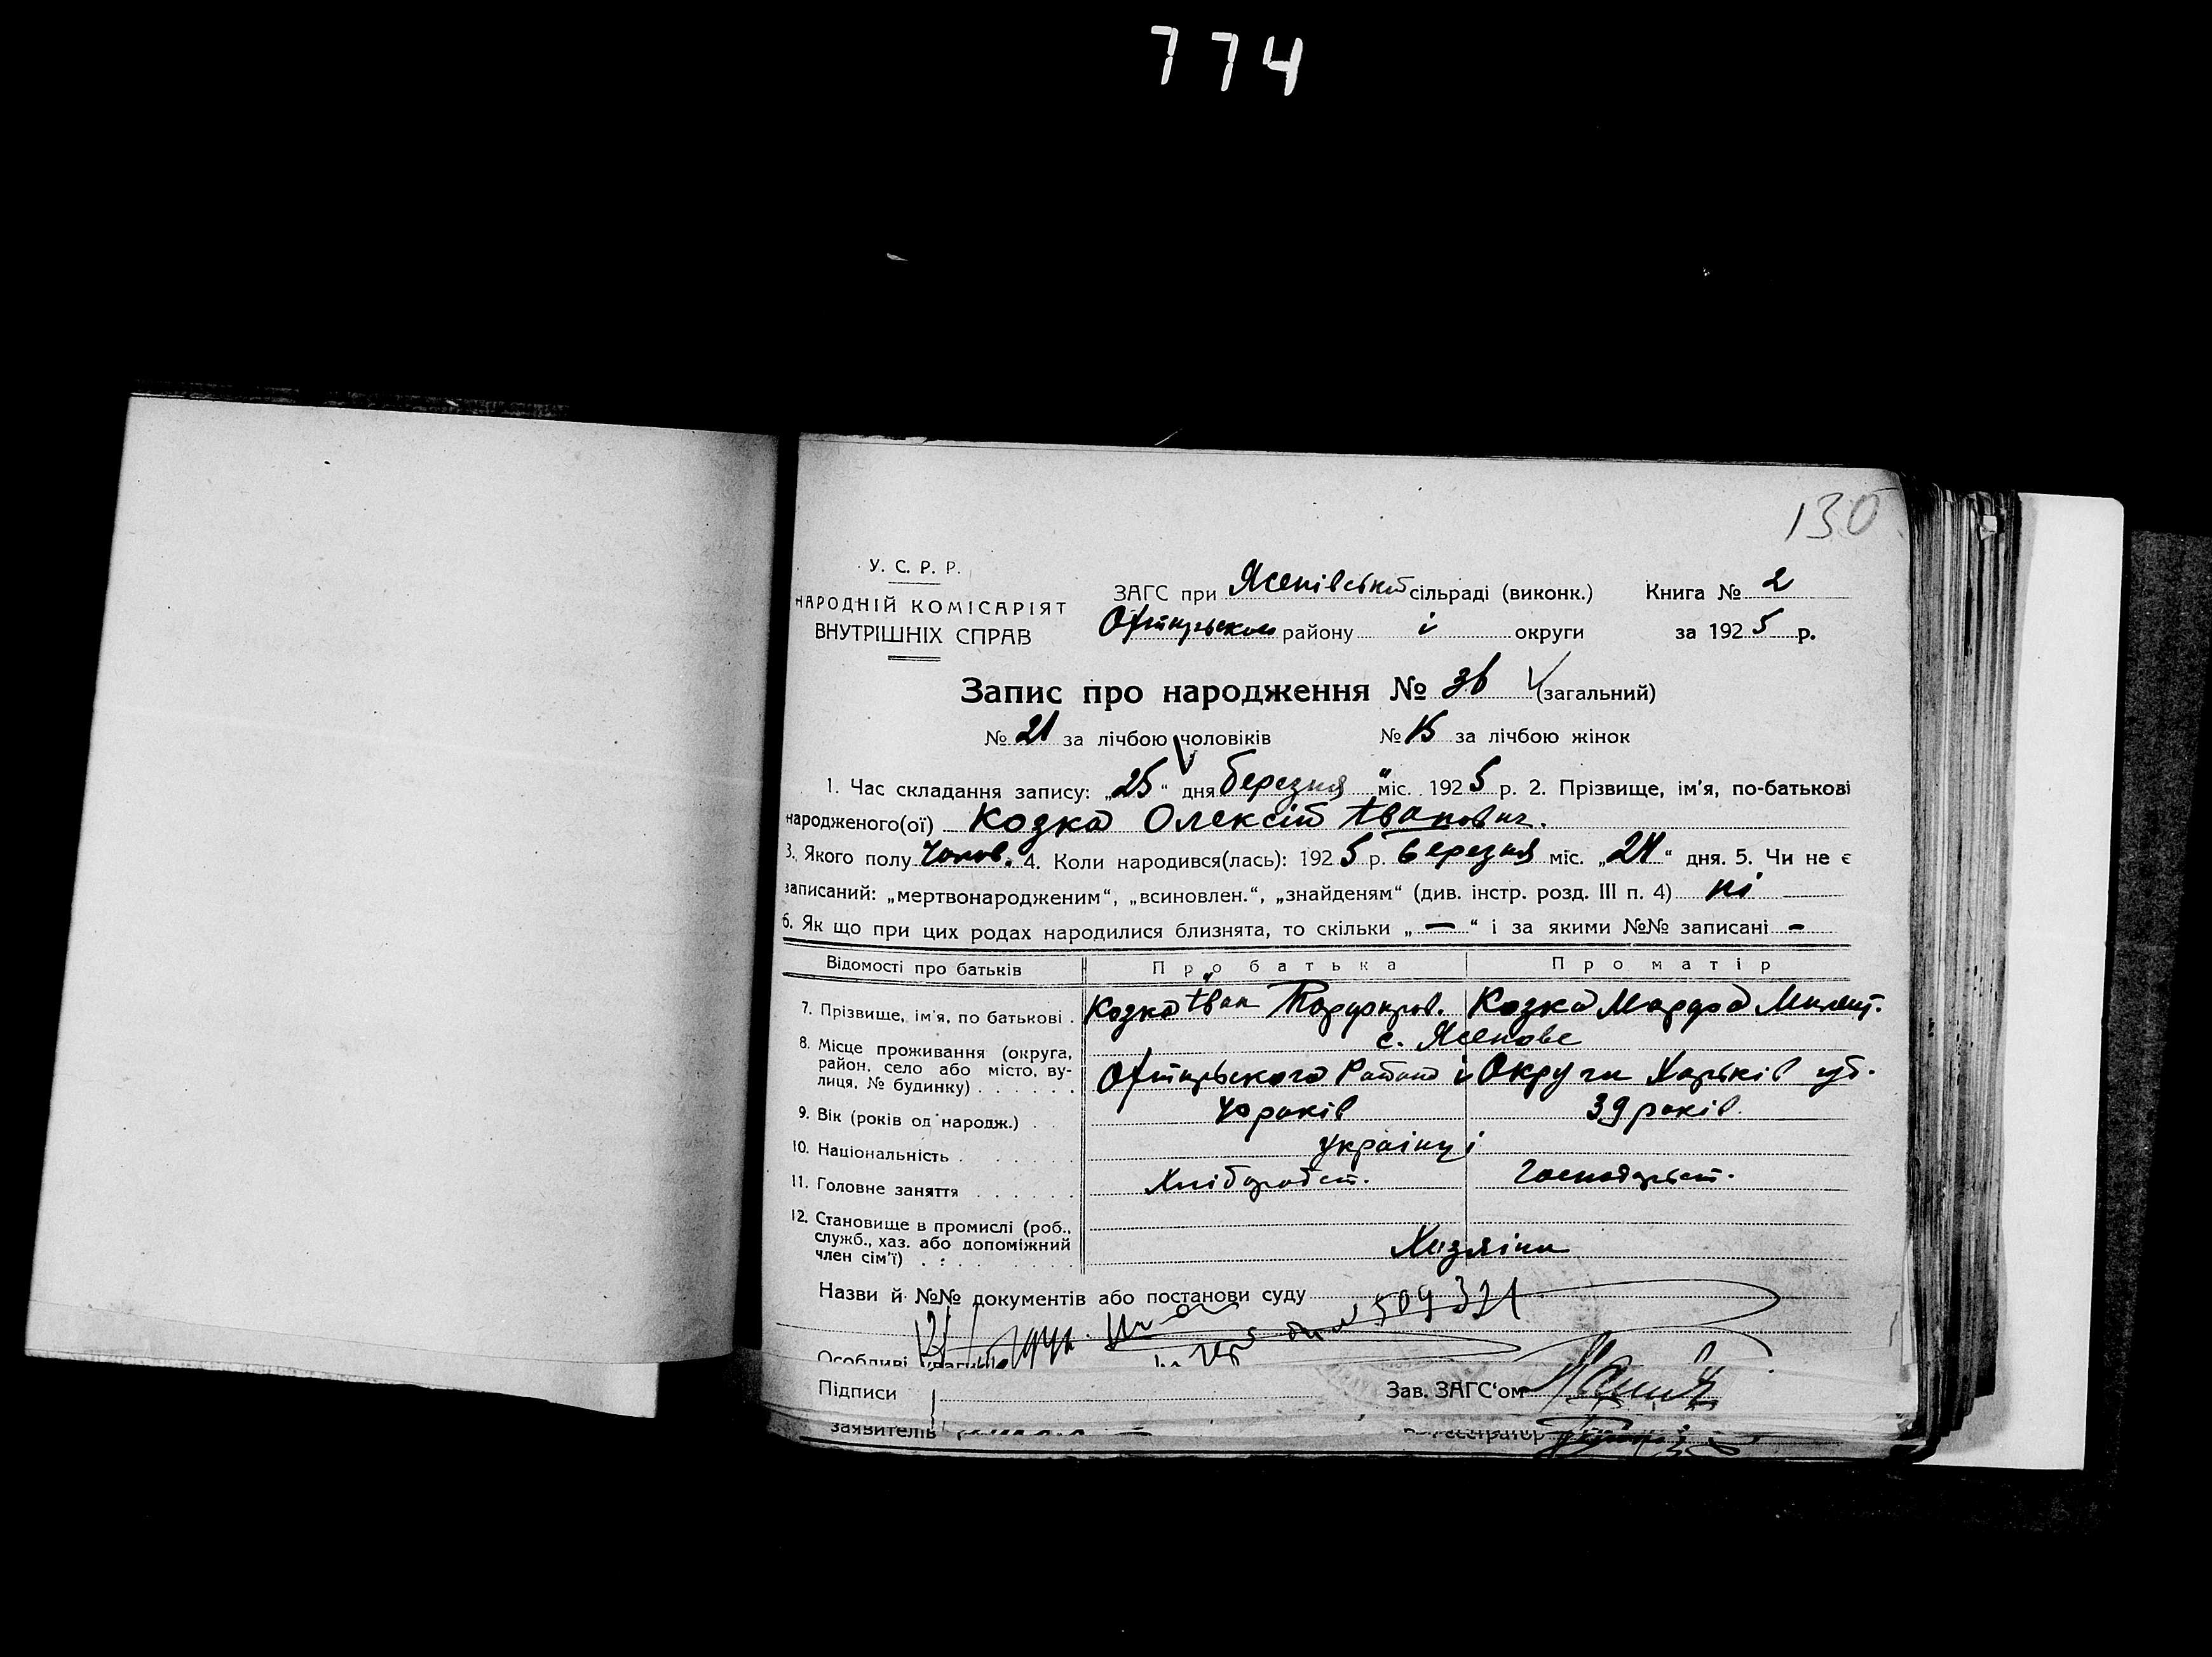 774
130
У. С. Р. Р.
НАРОДНІЙ КОМІСАРІЯТ
ВНУТРІШНІХ СПРАВ
ЗАГС при Ясенівській сільраді (виконк.) Книга № 2
Охтирьском району і округи за 1925 р.
Запис про народження № 36 (загальний)
№ 21 за лічбою чоловіків № 15 за лічбою жінок
1. Час складання запису: „25“ дня березня міс. 1925 р. 2. Прізвище, ім'я, по-батькові
народженого(ої) Козка Олексій Іванович.
3. Якого полу Чолов. 4. Коли народився(лась): 1925 р. березня міс. „21“ дня. 5. Чи не є
записаний: „мертвонародженим“, „всиновлен.“, „знайденям“ (див. інстр. розд. III п. 4) ні
6. Як що при цих родах народилися близнята, то скільки „—“ і за якими №№ записані —
Відомості про батьків Про батька Про матір
7. Прізвище, ім'я, по батькові . Козка Іван Порфиров. Козка Марфа
8. Місце проживання (округа, район, село або місто, вулиця, № будинку) . . . . . . с. Ясенове
Охтирьского Района й Округи Харьків губ.
9. Вік (років од народж.) . . 40 років 39 років.
10. Національність . . . . . . українці
11. Головне заняття . . . . . . Хліборобст. Господарьст.
12. Становище в промислі (роб., служб., хаз. або допоміжний член сім'ї) . . . . . . Хазяіни
Назви й №№ документів або постанови суду
509321
Особливі уваги
Підписи Зав. ЗАГС'ом
заявителів Реєстратор